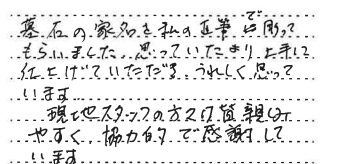 墓石の家名を私の直筆で彫って
もらいました。思っていたより上手に
仕上げていただき、うれしく思って
います。
現地スタッフの方々は皆親しみ
やすく、協力的で感謝して
います